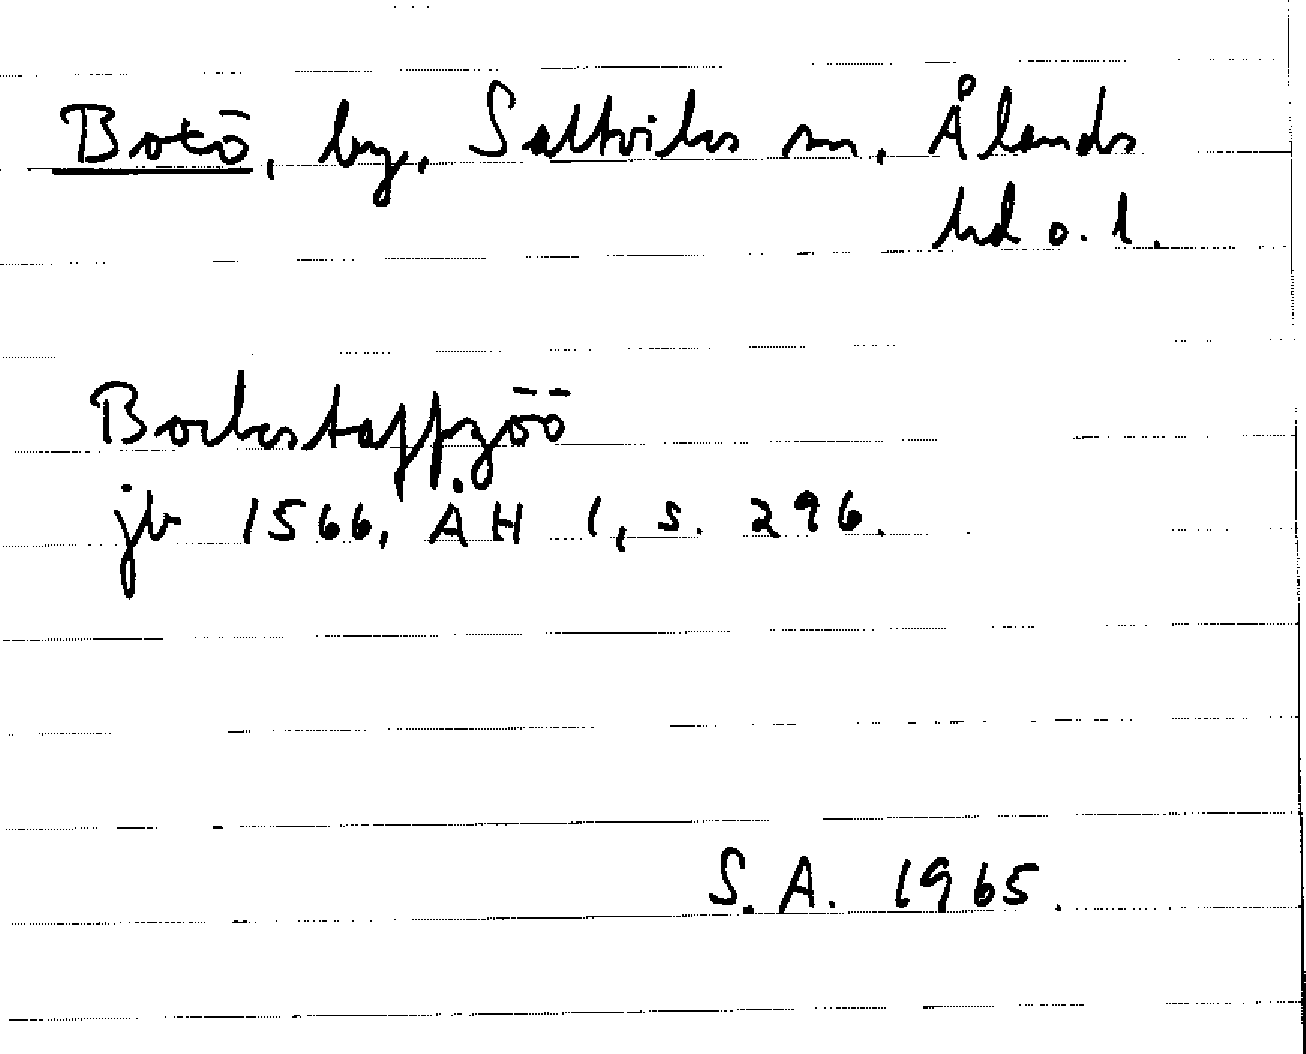 Botö, by, Saltviks sn, Ålands
hd o. l.
Bockestaffzöö
jb 1566, ÅH 1, s. 296.
S.A. 1965.